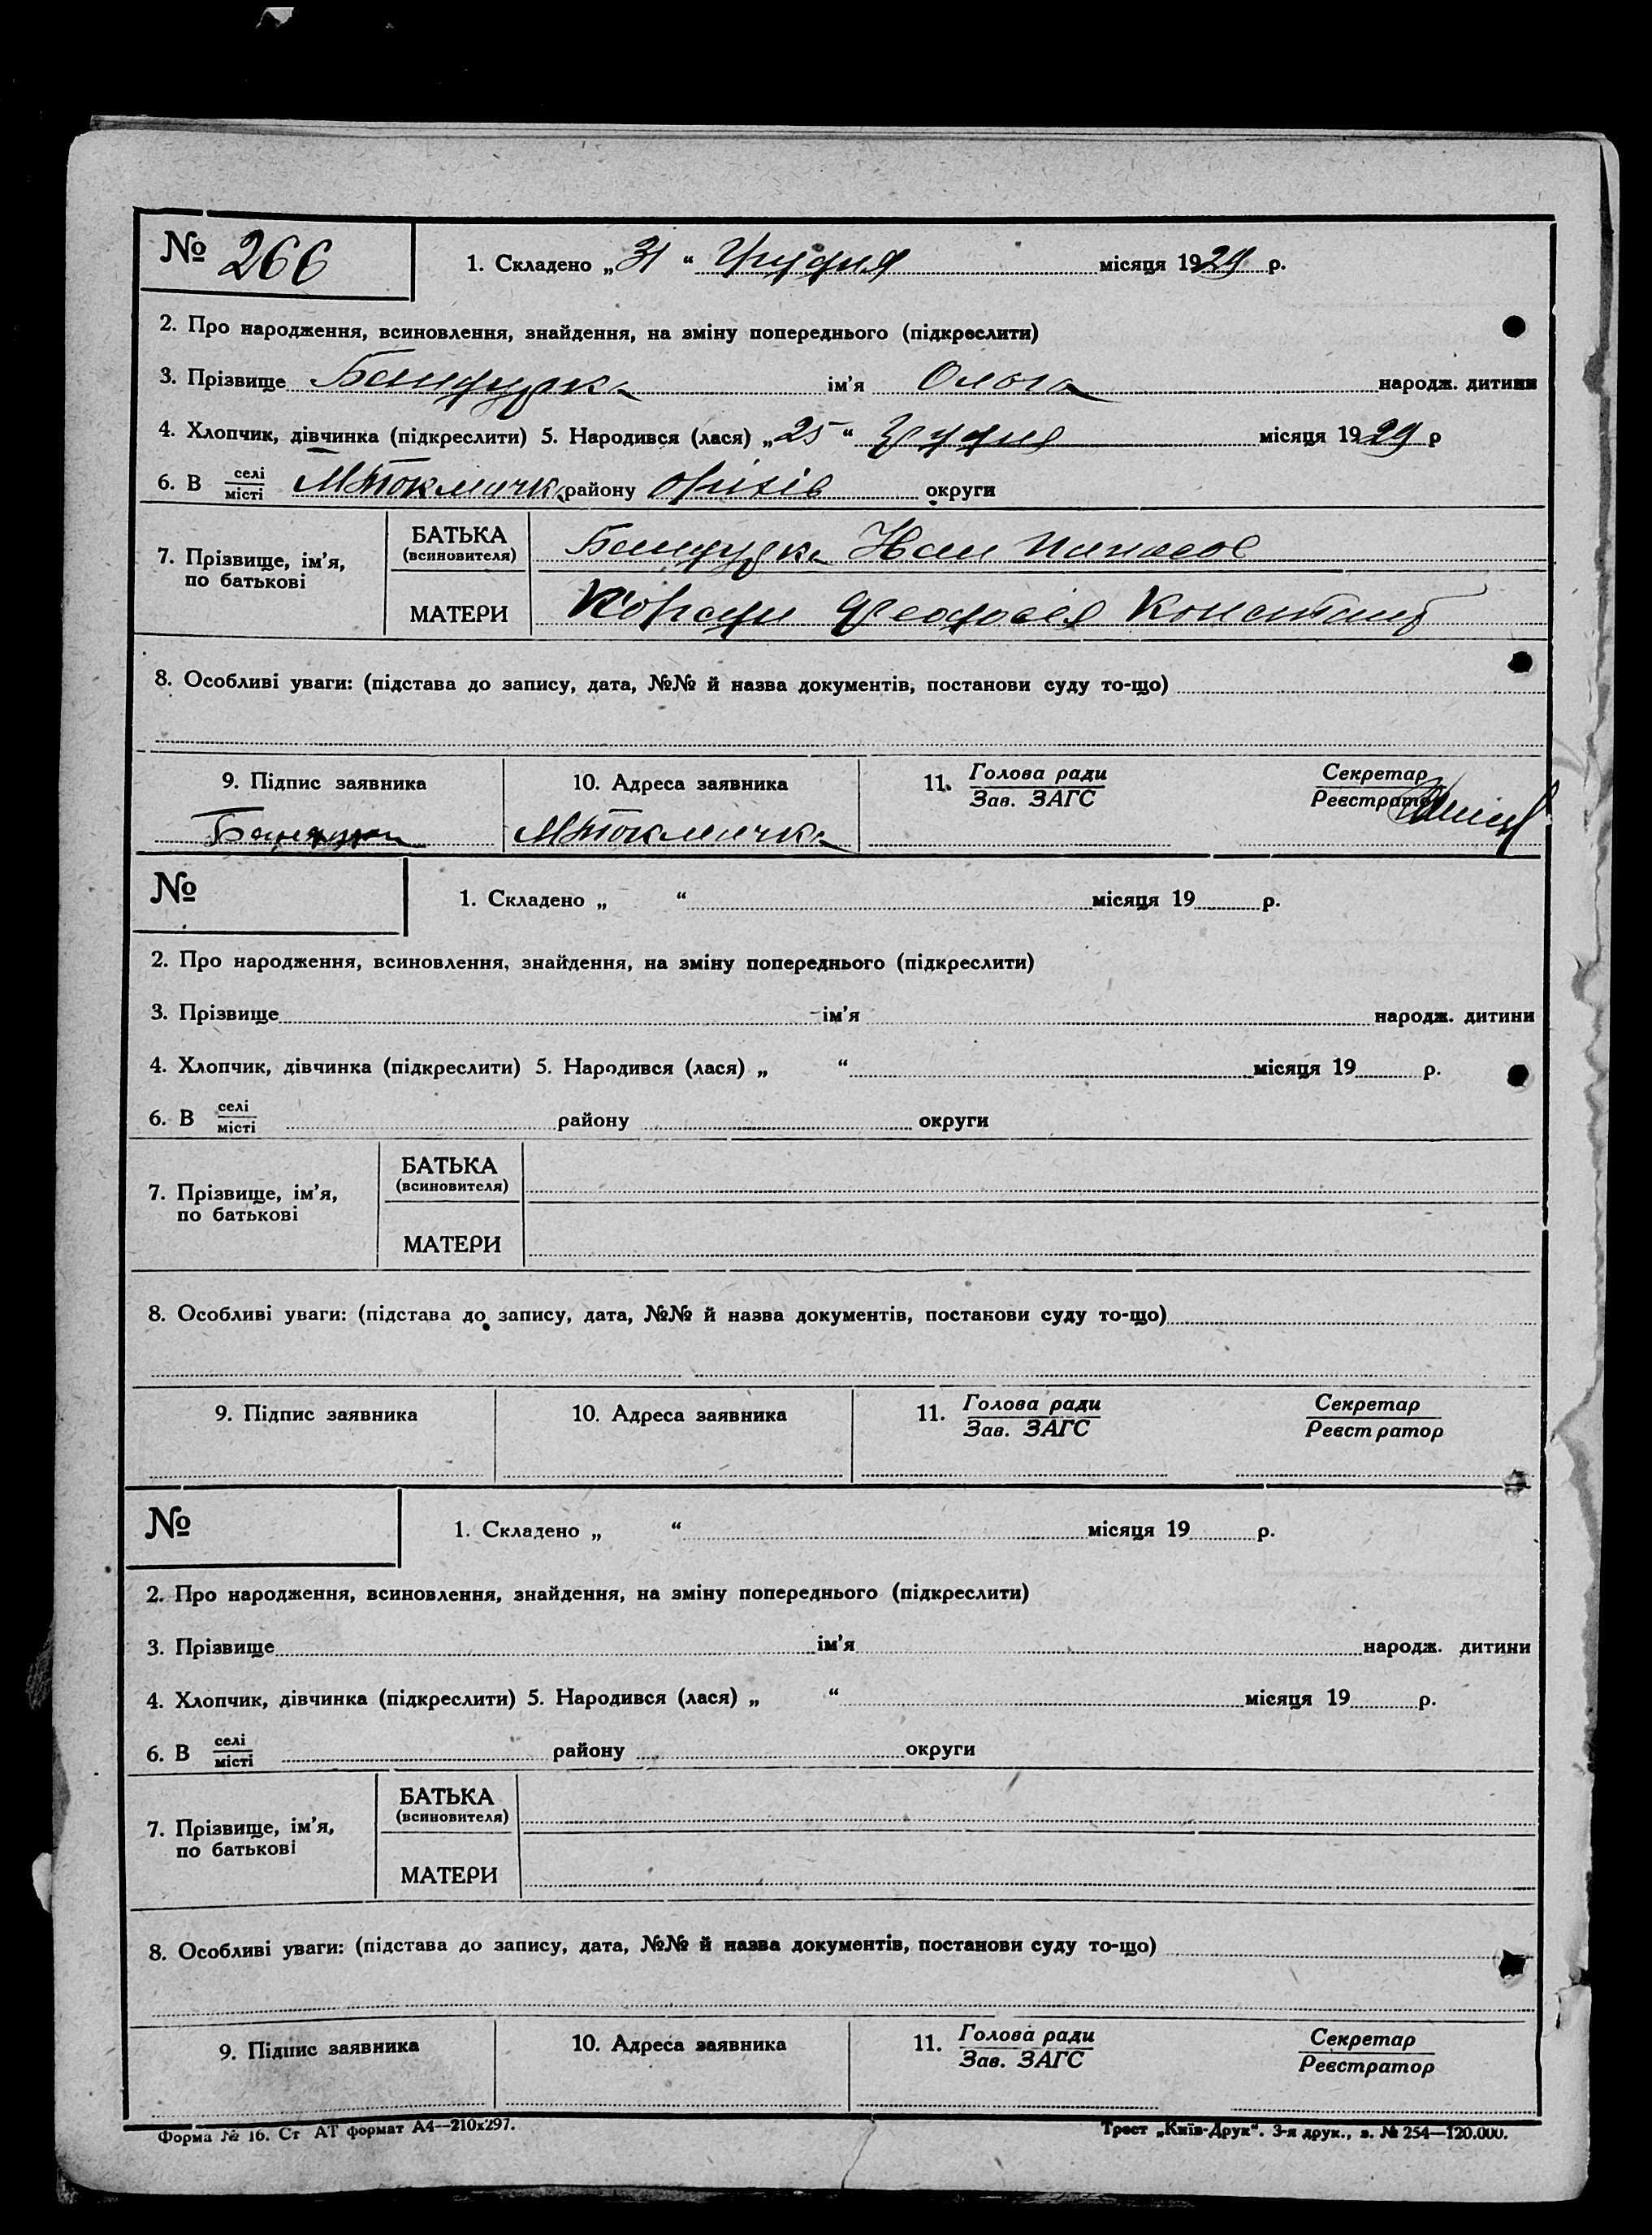 № 266
1. Складено „31“ Грудня місяця 1929 р.
2. Про народження, всиновлення, знайдення, на зміну попереднього (підкреслити)
3. Прізвище Бандурка ім’я Ольга народж. дитини
4. Хлопчик, дівчинка (підкреслити) 5. Народився (лася) „25“ Грудня місяця 1929 р
6. В селі/місті МТокмачка району Оріхів округи
7. Прізвище, ім’я, по батькові
БАТЬКА (всиновителя) Бандурка Панасов
МАТЕРИ Феодосия Констант
8. Особливі уваги: (підстава до запису, дата, №№ й назва документів, постанови суду то-що)
9. Підпис заявника 10. Адреса заявника 11. Голова ради/Зав. ЗАГС Секретар/Реєстратор
Бандурка МТокмачка
№
1. Складено „ “ місяця 19 р.
2. Про народження, всиновлення, знайдення, на зміну попереднього (підкреслити)
3. Прізвище ім’я народж. дитини
4. Хлопчик, дівчинка (підкреслити) 5. Народився (лася) „ “ місяця 19 р.
6. В селі/місті району округи
7. Прізвище, ім’я, по батькові
БАТЬКА (всиновителя)
МАТЕРИ
8. Особливі уваги: (підстава до запису, дата, №№ й назва документів, постанови суду то-що)
9. Підпис заявника 10. Адреса заявника 11. Голова ради/Зав. ЗАГС Секретар/Реєстратор
№
1. Складено „ “ місяця 19 р.
2. Про народження, всиновлення, знайдення, на зміну попереднього (підкреслити)
3. Прізвище ім’я народж. дитини
4. Хлопчик, дівчинка (підкреслити) 5. Народився (лася) „ “ місяця 19 р.
6. В селі/місті району округи
7. Прізвище, ім’я, по батькові
БАТЬКА (всиновителя)
МАТЕРИ
8. Особливі уваги: (підстава до запису, дата, №№ й назва документів, постанови суду то-що)
9. Підпис заявника 10. Адреса заявника 11. Голова ради/Зав. ЗАГС Секретар/Реєстратор
Форма № 16. Ст АТ формат А4—210х297. Трест „Київ-Друк“. 3-я друк., з. № 254—120.000.